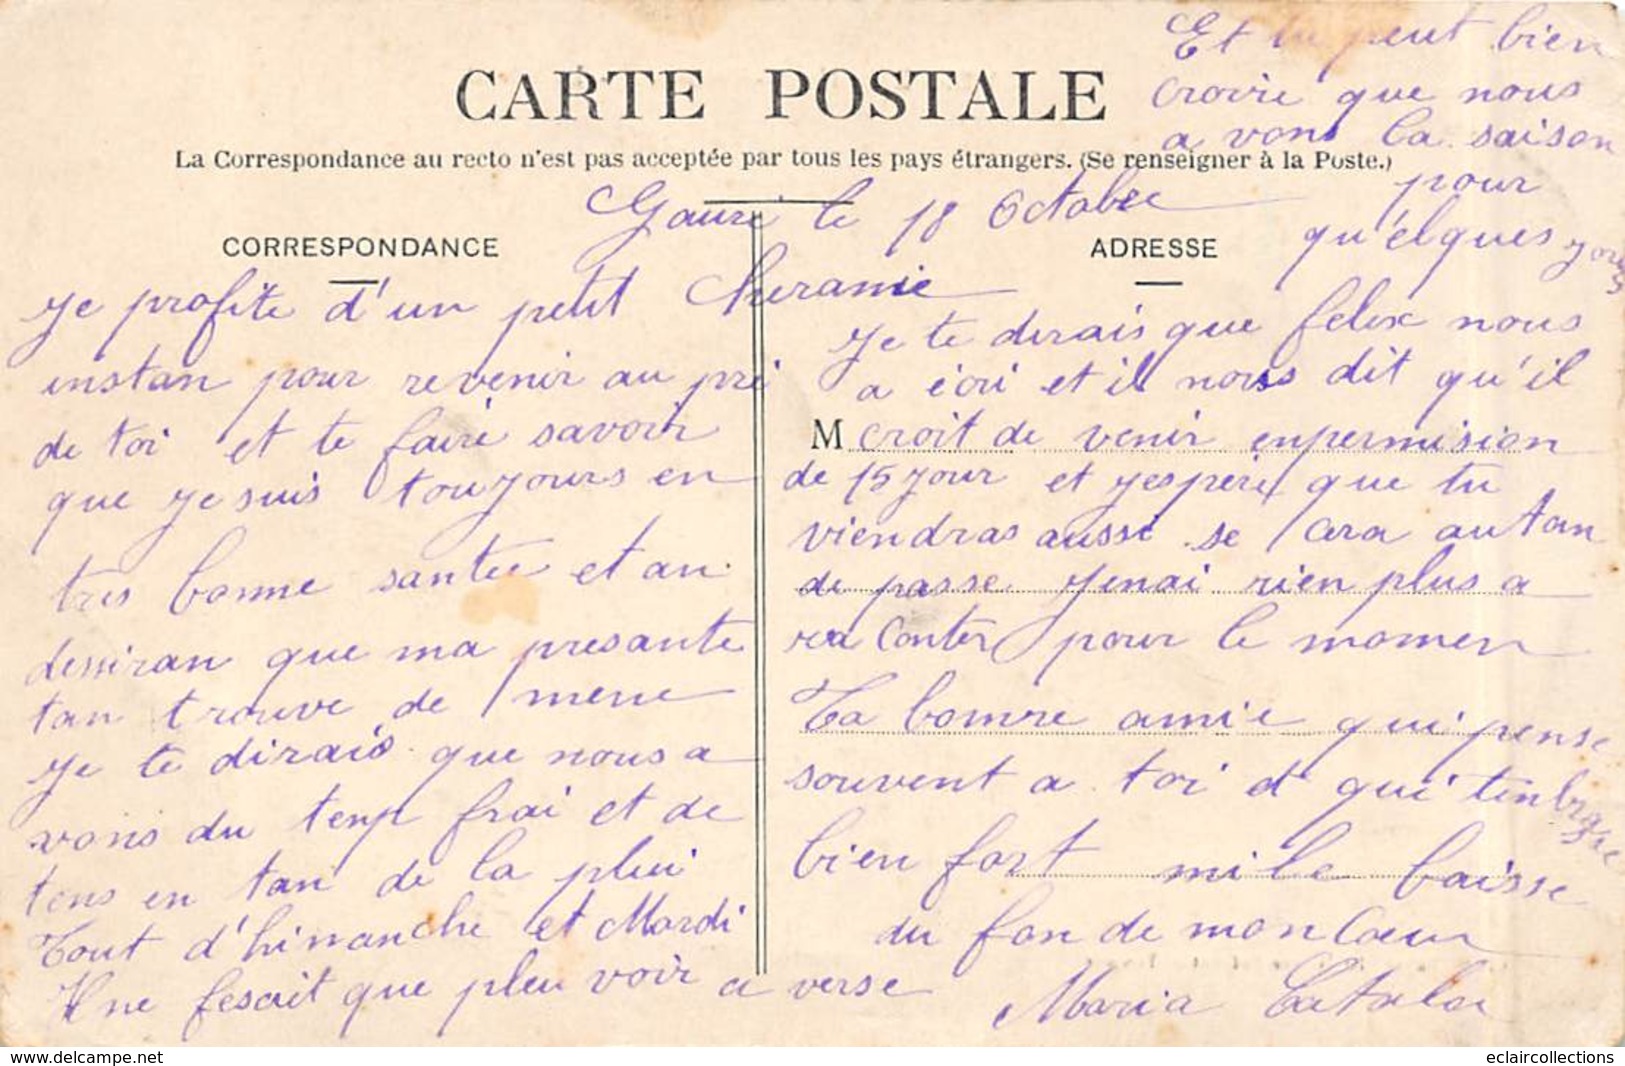 CARTE POSTALE
La Correspondance au recto n'est pas acceptée par tous les pays étrangers. (Se renseigner à la Poste.)
CORRESPONDANCE
ADRESSE
le 18 Octobre
Cheramie
Je profite d'un petit
instan pour revenir au pré
de toi et te faire savoir
que je suis toujours en
tres bonne santée et an
dessiran que ma presante
tan trouve de meme
Je te dirais que nous a
vons du temp frai et de
tens en tan de la plui
Tout d'himanche et Mardi
Il ne fesait que pleu voir a verse
Je te dirais que felix nous
a écri et il nous dit qu'il
M croit de venir enpermision
de 15 jour et jespère que tu
viendras aussi se cera autan
de passe Jenai rien plus a
ra Conter pour le momen
Ta bonne amie qui pense
souvent a toi et qui tenbrasse
bien fort mille baisse
du fon de mon Cœur
Maria
Et tu peut bien
croire que nous
a vons la saison
pour
qu'élques jours
www.delcampe.net
eclaircollections